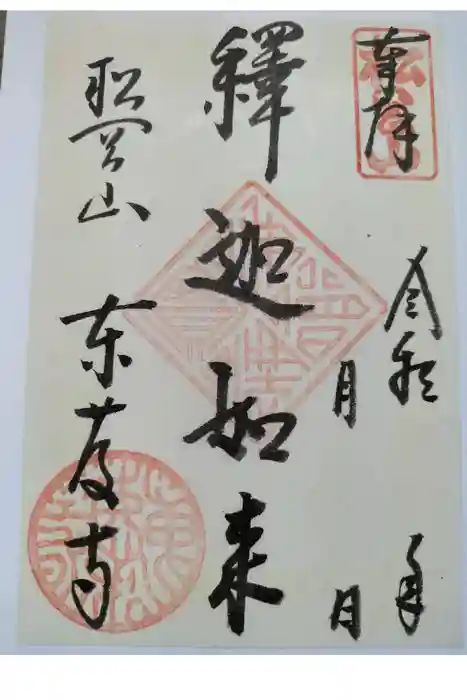 奉拝
令和　年
月　日
釋迦如来
松岡山　東慶寺